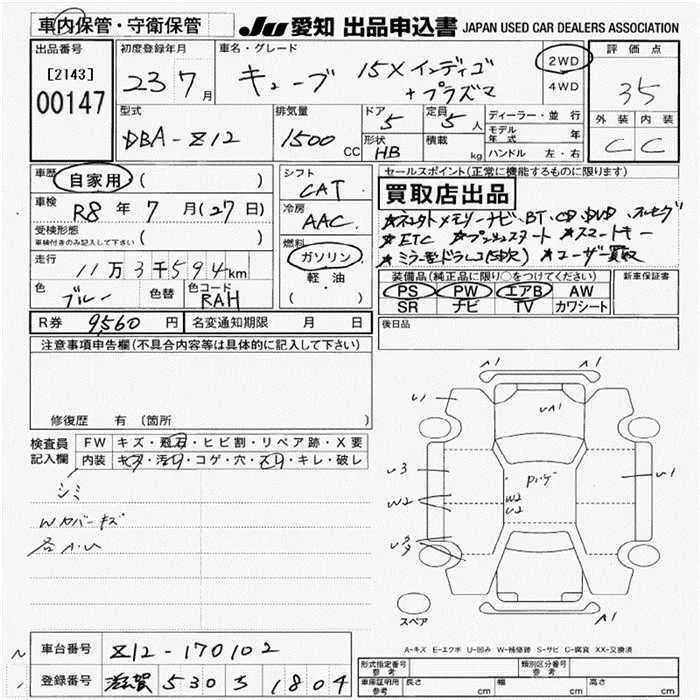 車内保管・守衛保管
JU 愛知 出品申込書 JAPAN USED CAR DEALERS ASSOCIATION
出品番号
[2143]
00147
初度登録年月
23 7月
車名・グレード
キューブ 15X インディゴ
+プラズマ
2WD
4WD
評価点
35
外装 内装
C C
型式
DBA-Z12
排気量
1500 CC
ドア
5
定員
5人
形状
HB
積載
kg
ディーラー・並行
モデル年式 年
ハンドル 左・右
車歴
自家用 ( )
車検
R8年 7月(27日)
受検形態
車検付きのみ記入して下さい ( )
走行
11万3千594km
色
ブルー
色替
色コード
RAH
シフト
CAT
冷房
AAC
燃料
ガソリン
軽・油
( )
セールスポイント(正常に機能するものに限ります)
買取店出品
★ETC ★プッシュスタート ★スマートキー
★ユーザー買取
装備品(純正品に限り○をつけてください)
PS PW エアB AW
SR ナビ TV カワシート
新車保証書
R券 9,560円
名変通知期限 月 日
後日品
注意事項申告欄(不具合内容等は具体的に記入して下さい)
修復歴 有 (箇所 )
検査員
記入欄
FW キズ・飛石・ヒビ割・リペア跡・X要
内装 キズ・汚れ・コゲ・穴・スレ・キレ・破レ
シミ
Wカバーキズ
各A.U
スペア
A-キズ E-エクボ U-凹み W-補修跡 S-サビ C-腐食 XX-交換済
車台番号
Z12-170102
登録番号
滋賀 530 さ 1804
形式指定番号
参考
類別区分番号
参考
車庫証明用
参考
長さ cm 幅 cm 高さ cm